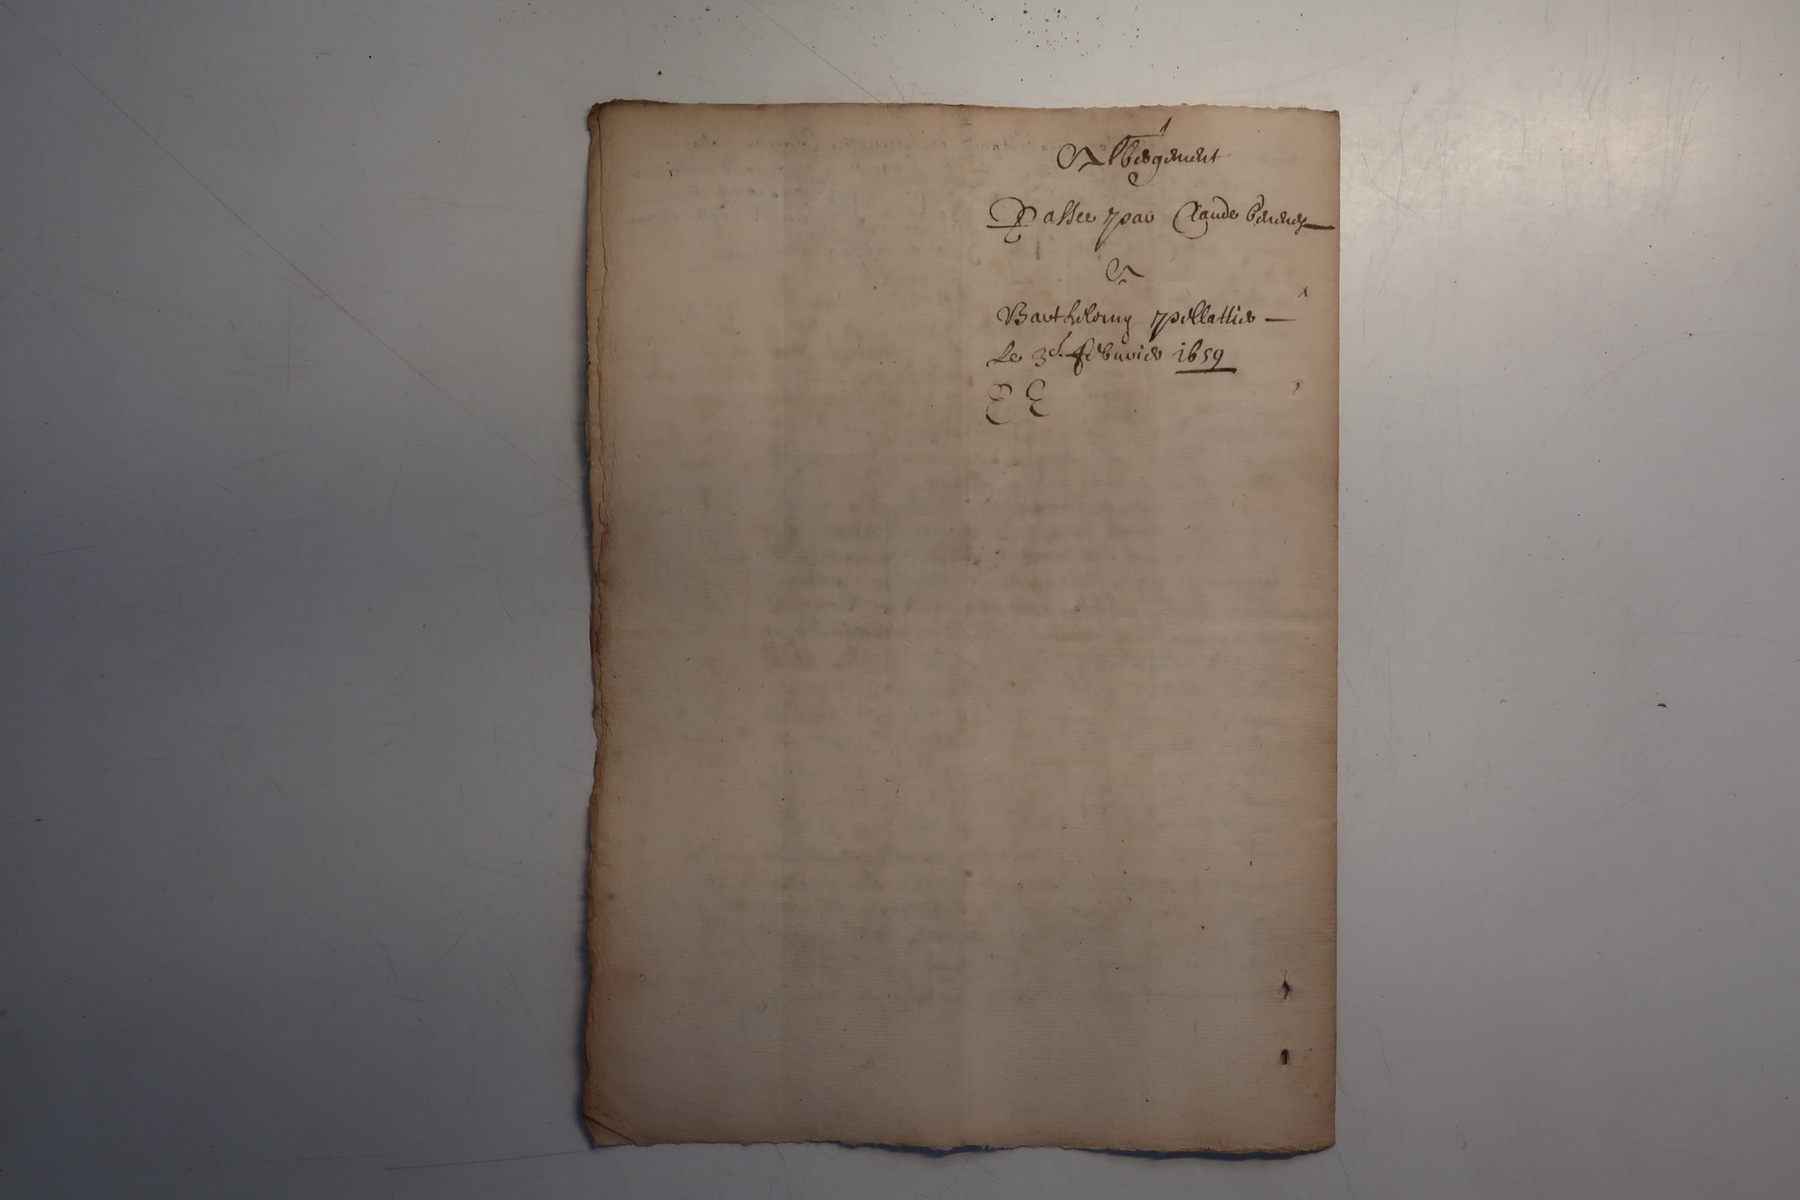 Albergement
Passee par Claude
A
Barthelemy pellattier
Le 3e. febuvier 1659
EE